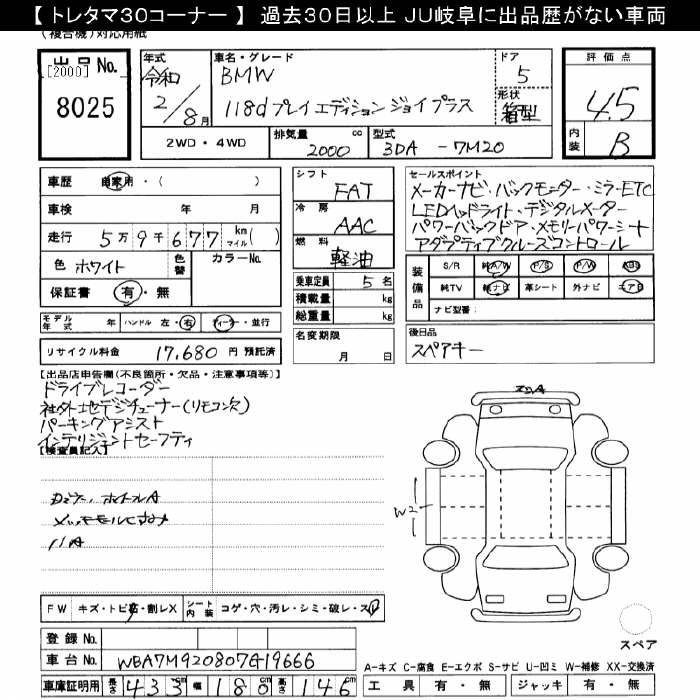 【 トレタマ30コーナー 】 過去30日以上 JU岐阜に出品歴がない車両
(複合機)対応用紙
出品 No.
[2000]
8025
年式
令和
2/8月
車名・グレード
BMW
118d プレイエディション ジョイプラス
ドア
5
形状
箱型
評価点
4.5
内装
B
2WD・4WD
排気量 cc
2000
型式
3DA - 7M20
車歴 自家用・( )
車検 年 月
走行 5万9千677 km マイル( )
色 ホワイト 色替 カラーNo.
保証書 有・無
シフト
FAT
冷房
AAC
燃料
軽油
乗車定員 5名
積載量 kg
総重量 kg
名変期限
月 日
セールスポイント
メーカーナビ・バックモニター・ミラーETC
LEDヘッドライト・デジタルメーター
パワーバックドア・メモリーパワーシート
アダプティブクルーズコントロール
装備品
S/R 純A/W P/S P/W ABS
純TV 純ナビ 革シート 外ナビ エアB
ナビ型番:
モデル年式 年 ハンドル 左・右 ディーラー・並行
リサイクル料金 17,680 円 預託済
後日品
スペアキー
【出品店申告欄(不良箇所・欠品・注意事項等)】
ドライブレコーダー
社外地デジチューナー(リモコン欠)
パーキングアシスト
インテリジェントセーフティ
【検査員記入】
W2
FW キズ・トビ石・割レX
シート内装 コゲ・穴・汚レ・シミ・破レ・スレ
登録 No.
車台 No. WBA7M920807G19666
車庫証明用 長さ 433 cm 幅 180 cm 高さ 146 cm
スペア
A-キズ C-腐食 E-エクボ S-サビ U-凹ミ W-補修 XX-交換済
工具 有・無 ジャッキ 有・無